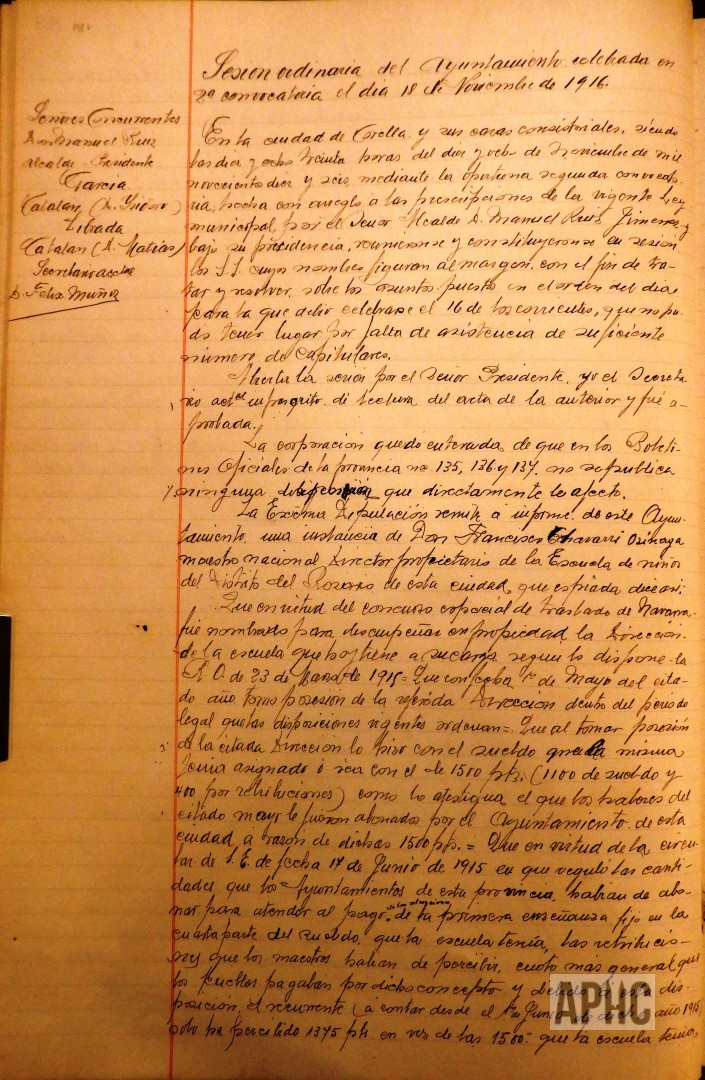 Sesion ordinaria del Ayuntamiento celebrada en
2a convocatoria el dia 18 de Noviembre de 1916.
Señores Concurrentes
Don Manuel Ruiz
Alcalde-Presidente
Garcia
Catalan (D. Isidoro)
Librada
Catalan (D. Matias)
Secretario actal
D. Felix Muñoz
En la ciudad de Corella y sus casas consistoriales, siendo
las diez y ocho treinta horas del diez y ocho de Noviembre de mil
novecientos diez y seis, mediante la oportuna segunda convocato-
ria, hecha con arreglo a las prescripciones de la vigente Ley
municipal, por el Señor Alcalde D. Manuel Ruiz Jimenez, y
bajo su presidencia, reunieronse y constituyeronse en sesion
los S.S. cuyos nombres figuran al margen, con el fin de tra-
tar y resolver, sobre los asuntos puestos en el orden del dia
para la que debio celebrarse el 16 de los corrientes, que no pu-
do tener lugar por falta de asistencia de suficiente
número de capitulares.
Abierta la sesion por el Señor Presidente, yo el Secreta-
rio actal infrascrito, di lectura del acta de la anterior y fué a-
probada.
La corporacion quedo enterada, de que en los Boleti-
nes Oficiales de la provincia no 135, 136 y 137, no se publica
ninguna disposición que directamente le afecte.
La Excma Diputación remite a informe de este Ayun-
tamiento, una instancia de Don Francisco Echavarri Osinaga
maestro nacional Director propietario de la Escuela de niños
del Distrito del Rosario de esta ciudad, que copiada dice asi:
Que en virtud del concurso especial de traslado de Navarra
fué nombrado para desempeñar en propiedad la Direccion
de la escuela que hoy tiene a su cargo segun lo dispone la
R. O. de 23 de Marzo de 1915= Que con fecha 1º de Mayo del cita-
do año tomo posesion de la referida Direccion dentro del periodo
legal que las disposiciones vigentes ordenan= Que al tomar posesión
de la citada Direccion lo hizo con el sueldo que la misma
tenia asignado ó sea con el de 1500 pts. (1100 de sueldo y
400 por retribuciones) como lo atestigua el que los haberes del
citado mayo le fueron abonados por el Ayuntamiento de esta
ciudad a razon de dichas 1500 pts. = Que en virtud de la circu-
lar de S. E. de fecha 17 de Junio de 1915 en que reguló las canti-
dades que los Ayuntamientos de esta provincia habian de abo-
nar para atender al pago de las atenciones de la primera enseñanza fijo en la
cuarta parte del sueldo que la escuela tenia, las retribucio-
nes que los maestros habian de percibir, cuoto más general que
los pueblos pagaban por dicho concepto y debido a esta dis-
posición, el recurrente (a contar desde el 1º de Junio de dicho año 1915)
solo ha percibido 1375 pts en vez de las 1500 que la escuela tenia,
APHC